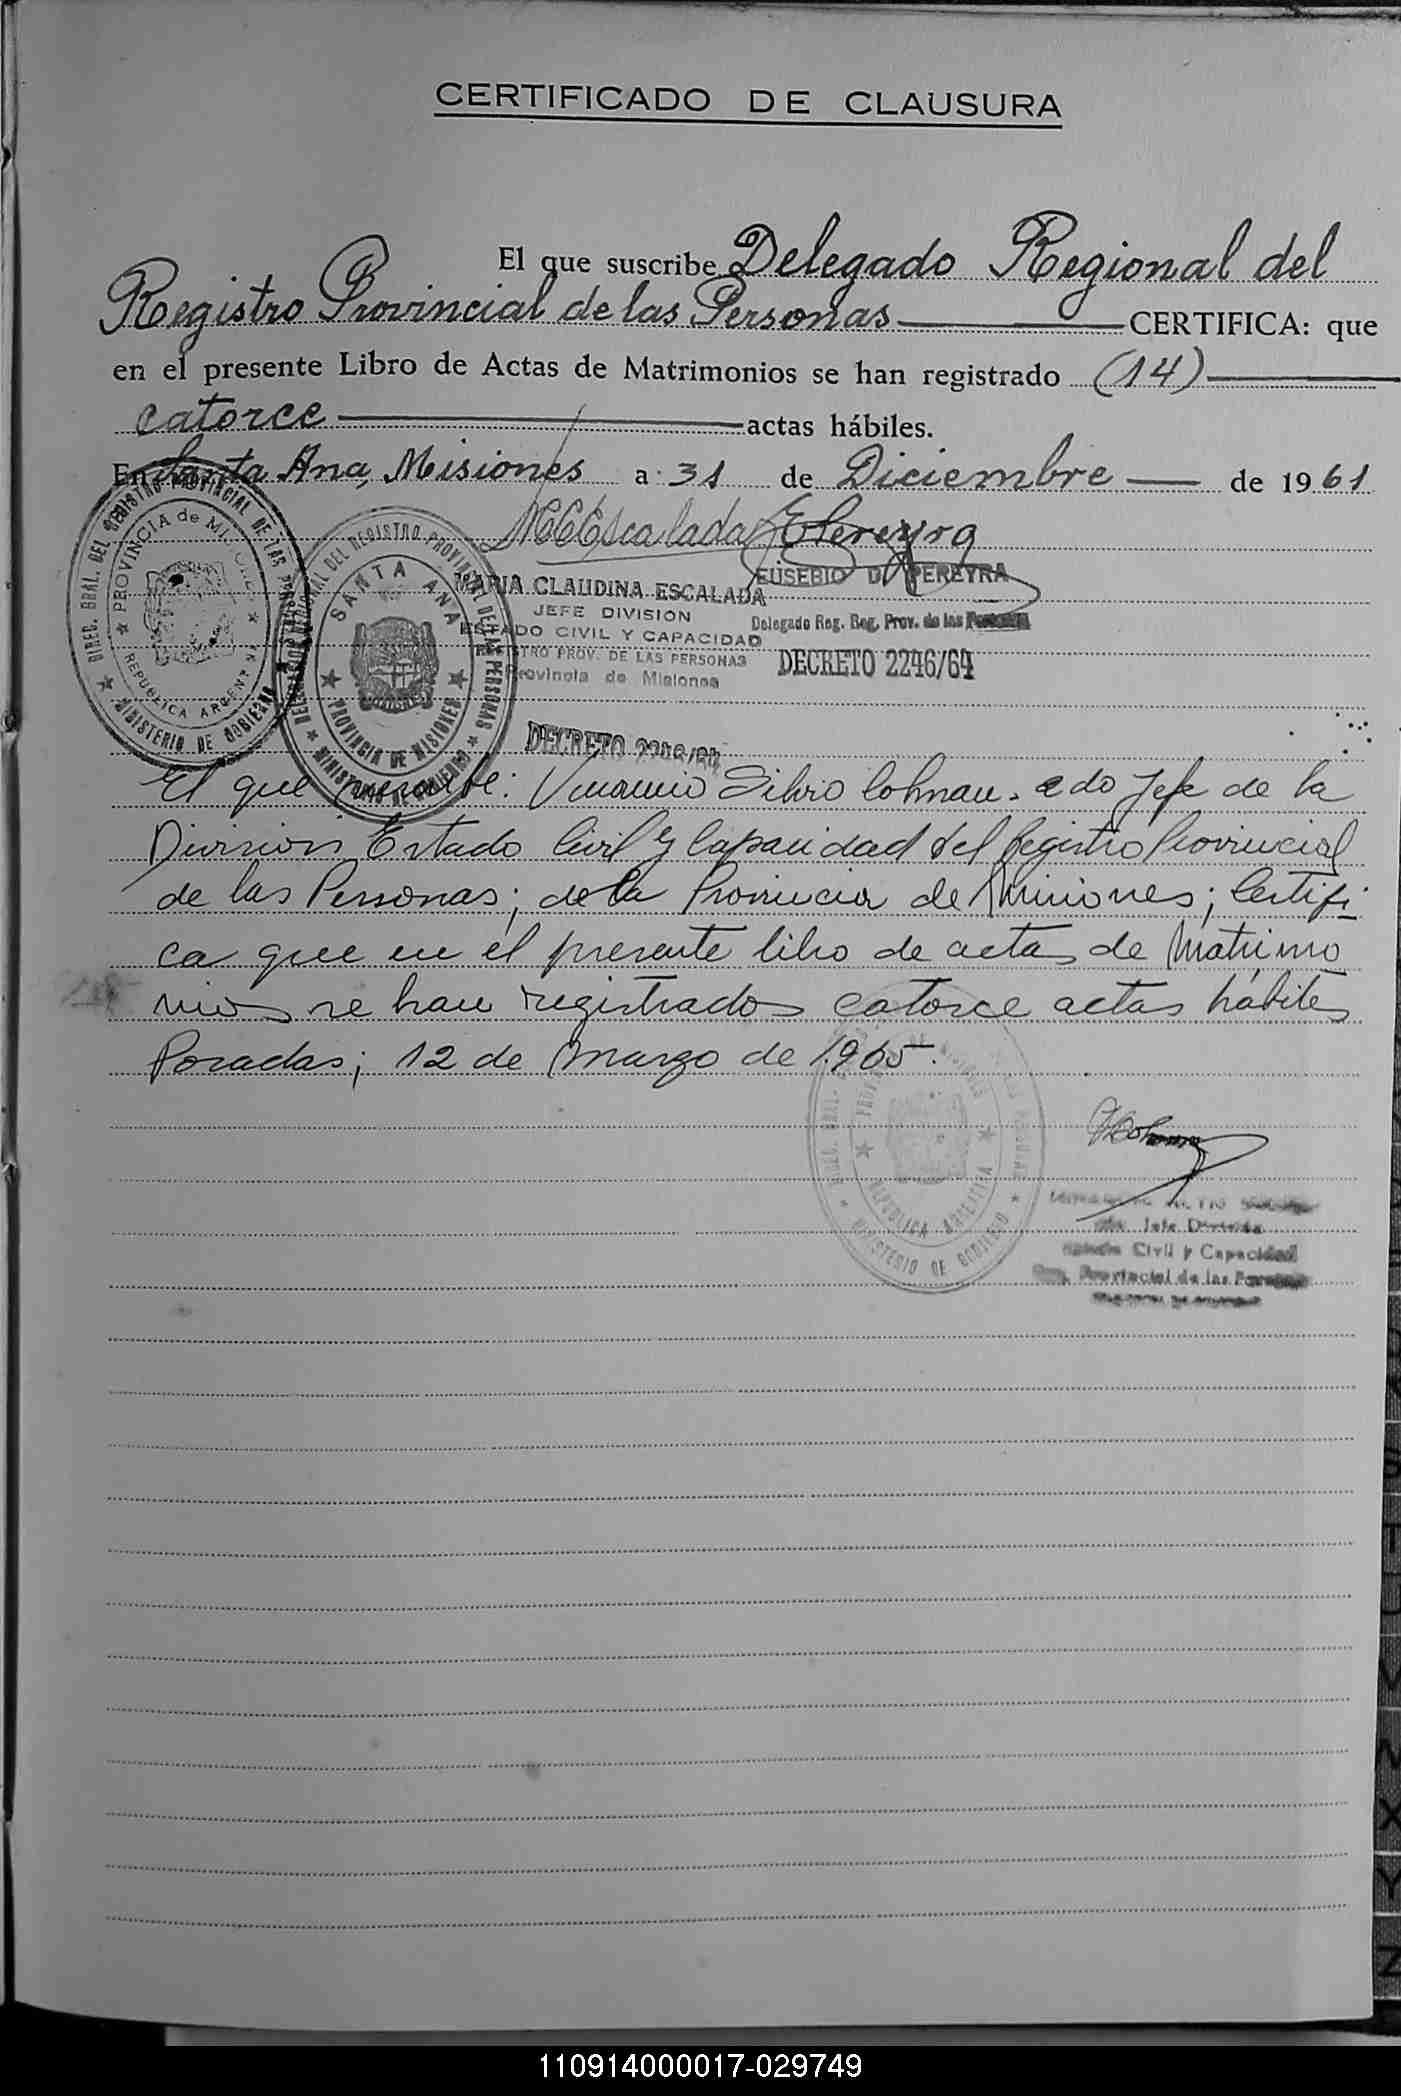 CERTIFICADO DE CLAUSURA
El que suscribe Delegado Regional del
Registro Provincial de las Personas CERTIFICA: que
en el presente Libro de Actas de Matrimonios se han registrado (14)
catorce actas hábiles.
En Santa Ana, Misiones a 31 de Diciembre de 1961
MCEscalada EPereyra
MARIA CLAUDINA ESCALADA
JEFE DIVISION
ESTADO CIVIL Y CAPACIDAD
REGISTRO PROV. DE LAS PERSONAS
Provincia de Misiones
DECRETO 2246/64
EUSEBIO D. PEREYRA
Delegado Reg. Reg. Prov. de las Personas
DECRETO 2246/64
DIREC. GRAL. DEL REGISTRO PROVINCIAL DE LAS PERSONAS
PROVINCIA de MISIONES
REPUBLICA ARGENTINA
MINISTERIO DE GOBIERNO
DELEGACION REGIONAL DEL REGISTRO PROVINCIAL DE LAS PERSONAS
SANTA ANA
PROVINCIA DE MISIONES
MINISTERIO DE GOBIERNO
El que suscribe: Silvio Cohnau. Jefe de la
Division Estado Civil y Capacidad del Registro Provincial
de las Personas; de la Provincia de Misiones; Certifi
ca que en el presente libro de actas de Matrimo
nios se han registrados catorce actas hábiles
Posadas; 12 de Marzo de 1965.
REPUBLICA ARGENTINA
MINISTERIO DE GOBIERNO
Jefe División
Estado Civil y Capacidad
Reg. Provincial de las Personas
110914000017-029749